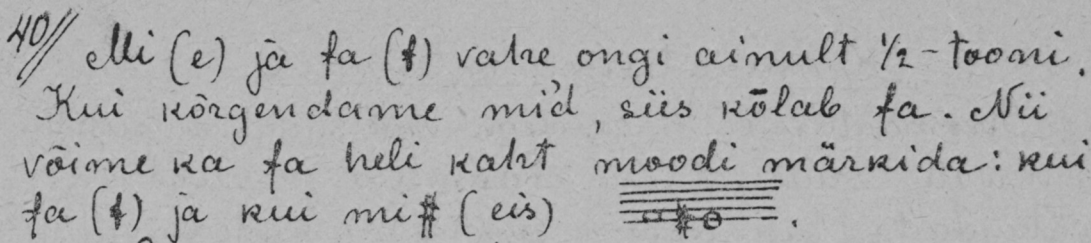 40// Mi (e) ja fa (f) vahe ongi ainult ½-tooni.
Kui kõrgendame mi'd, siis kõlab fa. Nii
võime ka fa heli kaht moodi märkida: kui
fa (f) ja kui mi# (eis) .